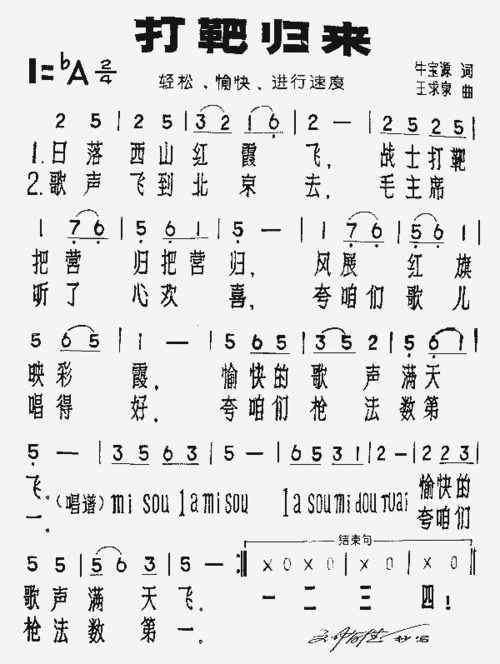 打靶归来
1=♭A 2/4
轻松、愉快、进行速度
牛宝源 词
王求泉 曲
2 5 | 2 5 | 3 2 1 6 | 2 — | 2 5 2 5 |
1.日落西山红霞飞, 战士打靶
2.歌声飞到北京去, 毛主席
1 7 6 | 5 6 1 | 5 — | 1 7 6 | 5 6 1 |
把营归把营归, 风展红旗
听了心欢喜, 夸咱们歌儿
5 6 5 | 1 — | 5 6 5 5 | 3 5 2 | 5 6 1 |
映彩霞, 愉快的歌声满天
唱得好, 夸咱们枪法数第
5 — | 3 5 6 3 | 5 — | 6 5 3 1 | 2 — | 2 2 3 |
飞。(唱谱) mi sou la mi sou la sou mi dou ruai 愉快的
一。 夸咱们
5 5 | 5 6 3 | 5 — :‖ X O X O | X | X ‖
结束句
歌声满天飞。 一二三四!
枪法数第一。
抄写